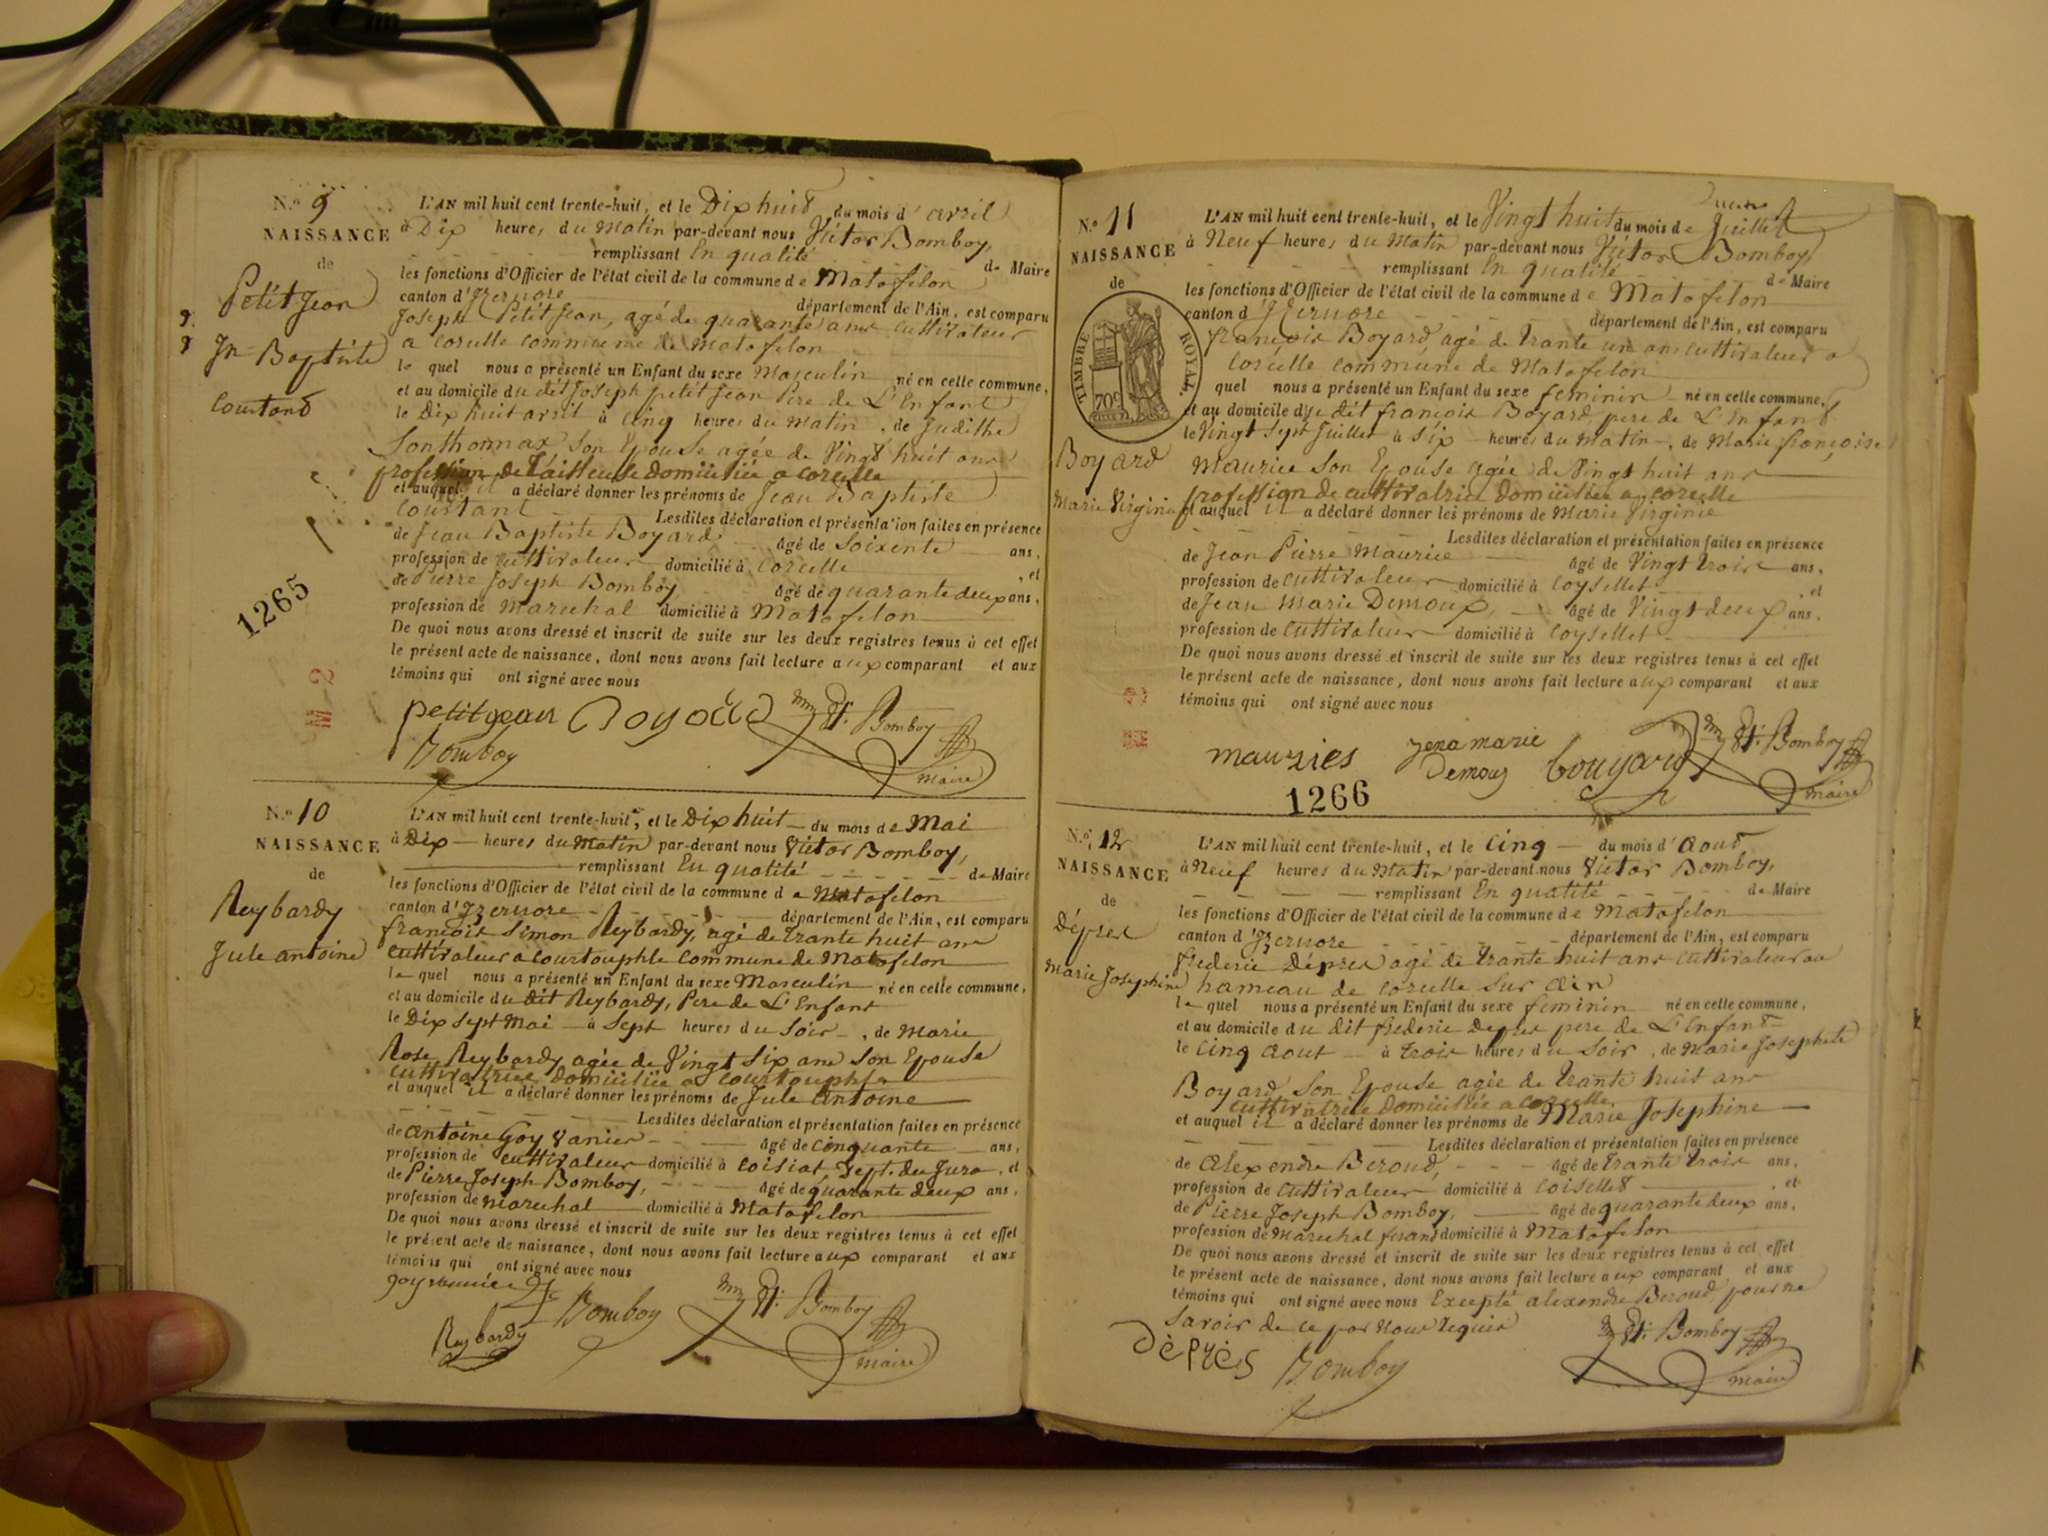 N.º 9
NAISSANCE
de
Petit Jean
Jn Baptiste
Coustant
1265
M 2
L'AN mil huit cent trente-huit, et le Dix huit du mois d'avril
à Dix heures du Matin par-devant nous Victor Bomboy,
remplissant En qualité de Maire
les fonctions d'Officier de l'état civil de la commune de Matafelon
canton d'Izernore département de l'Ain, est comparu
Joseph Petit Jean, agé de quarante ans cultivateur
a corcelle commune de matafelon
le quel nous a présenté un Enfant du sexe Masculin né en cette commune,
et au domicile du dit Joseph petit Jean Pere de L'Enfant
le Dix huit avril à Cinq heures du Matin, de Judithe
Sonthonnax Son Epouse agée de Vingt huit ans
profession de Tailleuse domiciliée a corcelle
et auquel il a déclaré donner les prénoms de Jean Baptiste
Coustant Lesdites déclaration et présentation faites en présence
de Jean Baptiste Boyard âgé de Soixente ans,
profession de cultivateur domicilié à Corcelle, et
de Pierre Joseph Bomboy âgé de quarante deux ans,
profession de marechal domicilié à Matafelon
De quoi nous avons dressé et inscrit de suite sur les deux registres tenus à cet effet
le présent acte de naissance, dont nous avons fait lecture aux comparant et aux
témoins qui ont signé avec nous
petitjean Boyard Vt. Bomboy
Bomboy maire
N.º 10
NAISSANCE
de
Reybardy
Jule antoine
L'AN mil huit cent trente-huit, et le Dix huit du mois de Mai
à Dix heures du Matin par-devant nous Victor Bomboy,
remplissant En qualité de Maire
les fonctions d'Officier de l'état civil de la commune de Matafelon
canton d'Izernore département de l'Ain, est comparu
françois Simon Reybardy, agé de trante huit ans
cultivateur a courtouphle commune de Matafelon
le quel nous a présenté un Enfant du sexe Masculin né en cette commune,
et au domicile du dit Reybardy, Pere de L'Enfant
le Dix sept Mai à Sept heures du Soir, de Marie
Rose Reybardy agée de Vingt Six ans Son Epouse
cultivatrice domiciliée a courtouphle
et auquel il a déclaré donner les prénoms de Jule antoine
Lesdites déclaration et présentation faites en présence
de antoine Goy Vanier âgé de Cinquante ans,
profession de cultivateur domicilié à Coisiat Dept. du Jura, et
de Pierre Joseph Bomboy, âgé de quarante deux ans,
profession de marechal domicilié à Matafelon
De quoi nous avons dressé et inscrit de suite sur les deux registres tenus à cet effet
le présent acte de naissance, dont nous avons fait lecture aux comparant et aux
témoins qui ont signé avec nous
Bomboy Vt. Bomboy
Reybardy maire
N.º 11
NAISSANCE
de
TIMBRE ROYAL
Boyard
Marie Virginie
L'AN mil huit cent trente-huit, et le Vingt huit du mois de Juillet
à Neuf heures du Matin par-devant nous Victor Bomboy
remplissant En qualité de Maire
les fonctions d'Officier de l'état civil de la commune de Matafelon
canton d'Izernore département de l'Ain, est comparu
françois Boyard agé de trante un ans cultivateur a
Corcelle commune de Matafelon
quel nous a présenté un Enfant du sexe feminin né en cette commune,
et au domicile du dit françois Boyard pere de L'Enfant
le Vingt Sept Juillet à Six heures du Matin, de Marie françoise
Maurice Son Epouse agée de Vingt huit ans
profession de cultivatrice domiciliée a corcelle
et auquel il a déclaré donner les prénoms de Marie Virginie
Lesdites déclaration et présentation faites en présence
de Jean Pierre Maurice âgé de Vingt trois ans,
profession de cultivateur domicilié à Coysellet, et
de Jean Marie Demoux, âgé de Vingt deux ans,
profession de Cultivateur domicilié à Coysellet
De quoi nous avons dressé et inscrit de suite sur les deux registres tenus à cet effet
le présent acte de naissance, dont nous avons fait lecture aux comparant et aux
témoins qui ont signé avec nous
mauries Jena marie bouyard Vt. Bomboy
demoux maire
1266
N.º 12
NAISSANCE
de
Déprés
Marie Josephine
L'AN mil huit cent trente-huit, et le Cinq du mois d'aout
à Neuf heures du Matin par-devant nous Victor Bomboy,
remplissant En qualité de Maire
les fonctions d'Officier de l'état civil de la commune de Matafelon
canton d'Izernore département de l'Ain, est comparu
frederic Déprés agé de trante huit ans cultivateur au
hameau de corcelle sur ain
le quel nous a présenté un Enfant du sexe feminin né en cette commune,
et au domicile du dit frederic Déprés pere de L'Enfant
le Cinq aout à trois heures du Soir, de Marie Josephete
Boyard Son Epouse agée de trante huit ans
cultivatrice domiciliée a corcelle
et auquel il a déclaré donner les prénoms de Marie Josephine
Lesdites déclaration et présentation faites en présence
de alexendre Beroud, âgé de trante trois ans,
profession de Cultivateur domicilié à Coisellet, et
de Pierre Joseph Bomboy, âgé de quarante deux ans,
profession de Marechal ferant domicilié à Matafelon
De quoi nous avons dressé et inscrit de suite sur les deux registres tenus à cet effet
le présent acte de naissance, dont nous avons fait lecture aux comparant et aux
témoins qui ont signé avec nous Excepté alexendre Beroud pour ne
Savoir de ce par Nous requis
Déprés Bomboy Vt. Bomboy
maire